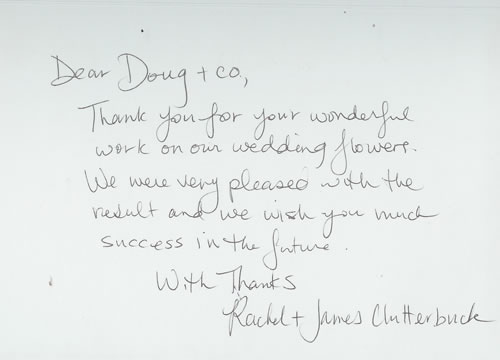 Dear Doug + co.,
Thank you for your wonderful
work on our wedding flowers.
We were very pleased with the
result and we wish you much
success in the future.
With Thanks
Rachel + James Clutterbuck